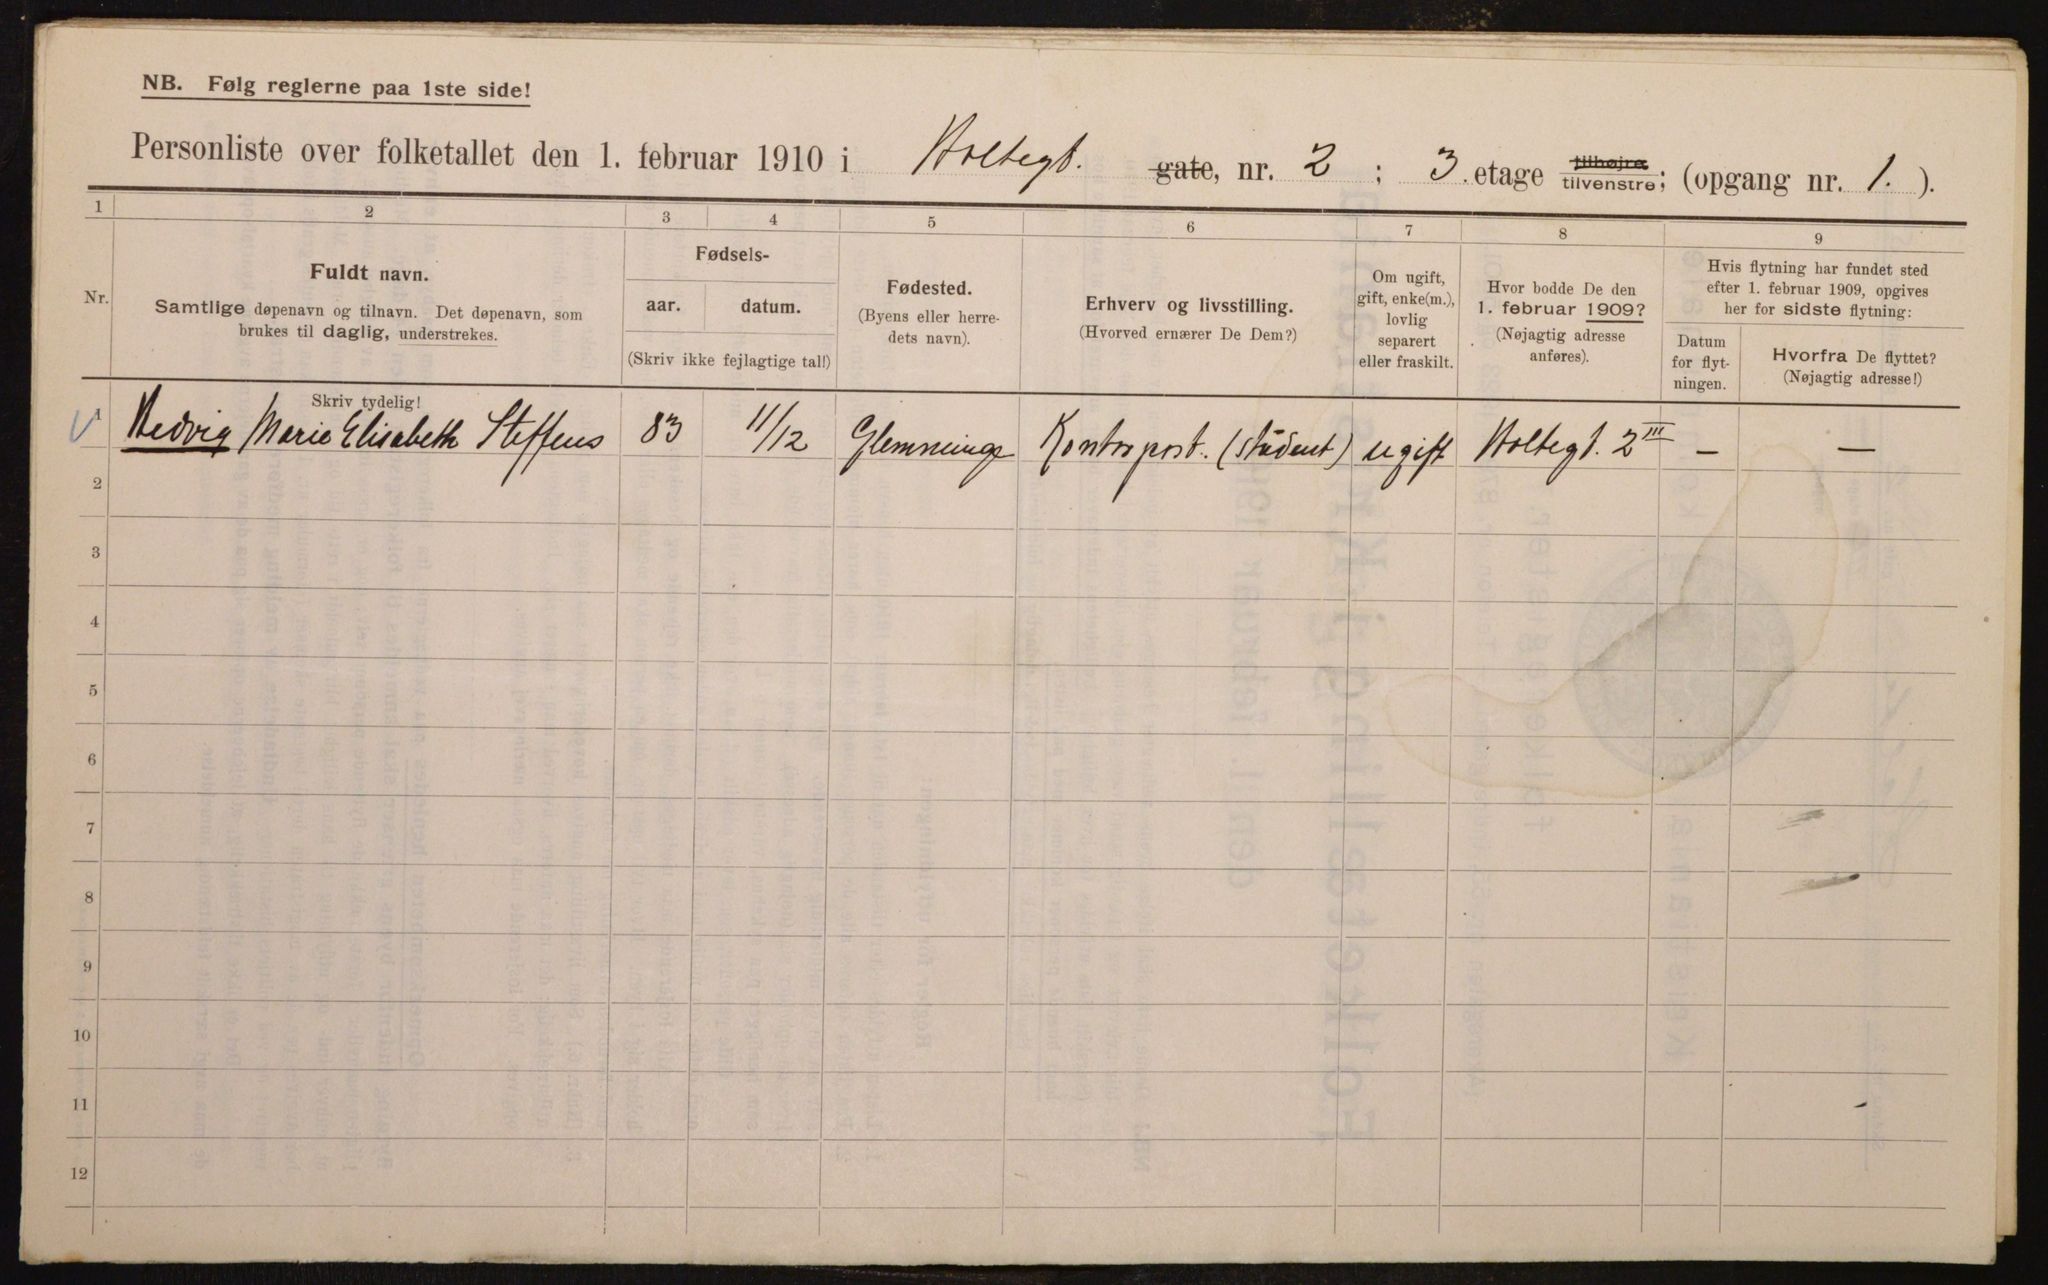 NB. Følg reglerne paa 1ste side!
Personliste over folketallet den 1. februar 1910 i Holtegt. gate, nr. 2 ; 3. etage tilhøjre tilvenstre; (opgang nr. 1. ).
1 2 3 4 5 6 7 8 9
Nr.
Fuldt navn.
Samtlige døpenavn og tilnavn. Det døpenavn, som
brukes til daglig, understrekes.
Fødsels-
aar. datum.
(Skriv ikke fejlagtige tal!)
Fødested.
(Byens eller herre-
dets navn).
Erhverv og livsstilling.
(Hvorved ernærer De Dem?)
Om ugift,
gift, enke(m.),
lovlig
separert
eller fraskilt.
Hvor bodde De den
1. februar 1909?
(Nøjagtig adresse
anføres).
Hvis flytning har fundet sted
efter 1. februar 1909, opgives
her for sidste flytning:
Datum
for flyt-
ningen.
Hvorfra De flyttet?
(Nøjagtig adresse!)
Skriv tydelig!
1 Hedvig Marie Elisabeth Steffens 83 11/12 Glemminge Kontorpost. (student) ugift Holtegt. 2 III — —
2
3
4
5
6
7
8
9
10
11
12